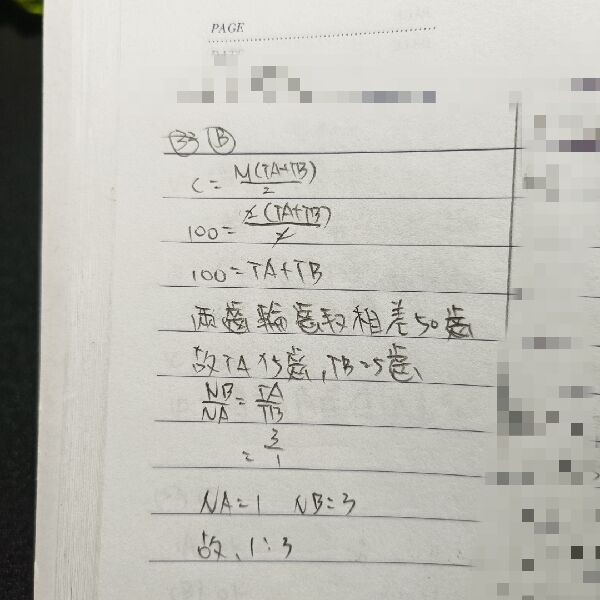 PAGE
DATE
33 B
C = M(TA+TB)/2
100 = 2(TA+TB)/2
100 = TA+TB
兩齒輪齒數相差50齒
故TA 75齒,TB 25齒、
NB/NA = TA/TB
= 3/1
NA=1 NB=3
故、1:3